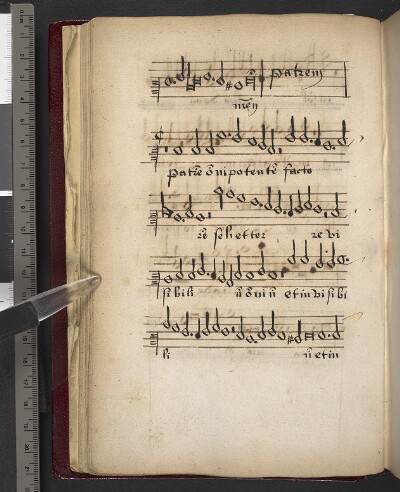 patrem
men
patrē ōnipotentē facto
rē seli etter re vi
sibili ū ōniū et in visibi
li ū et in